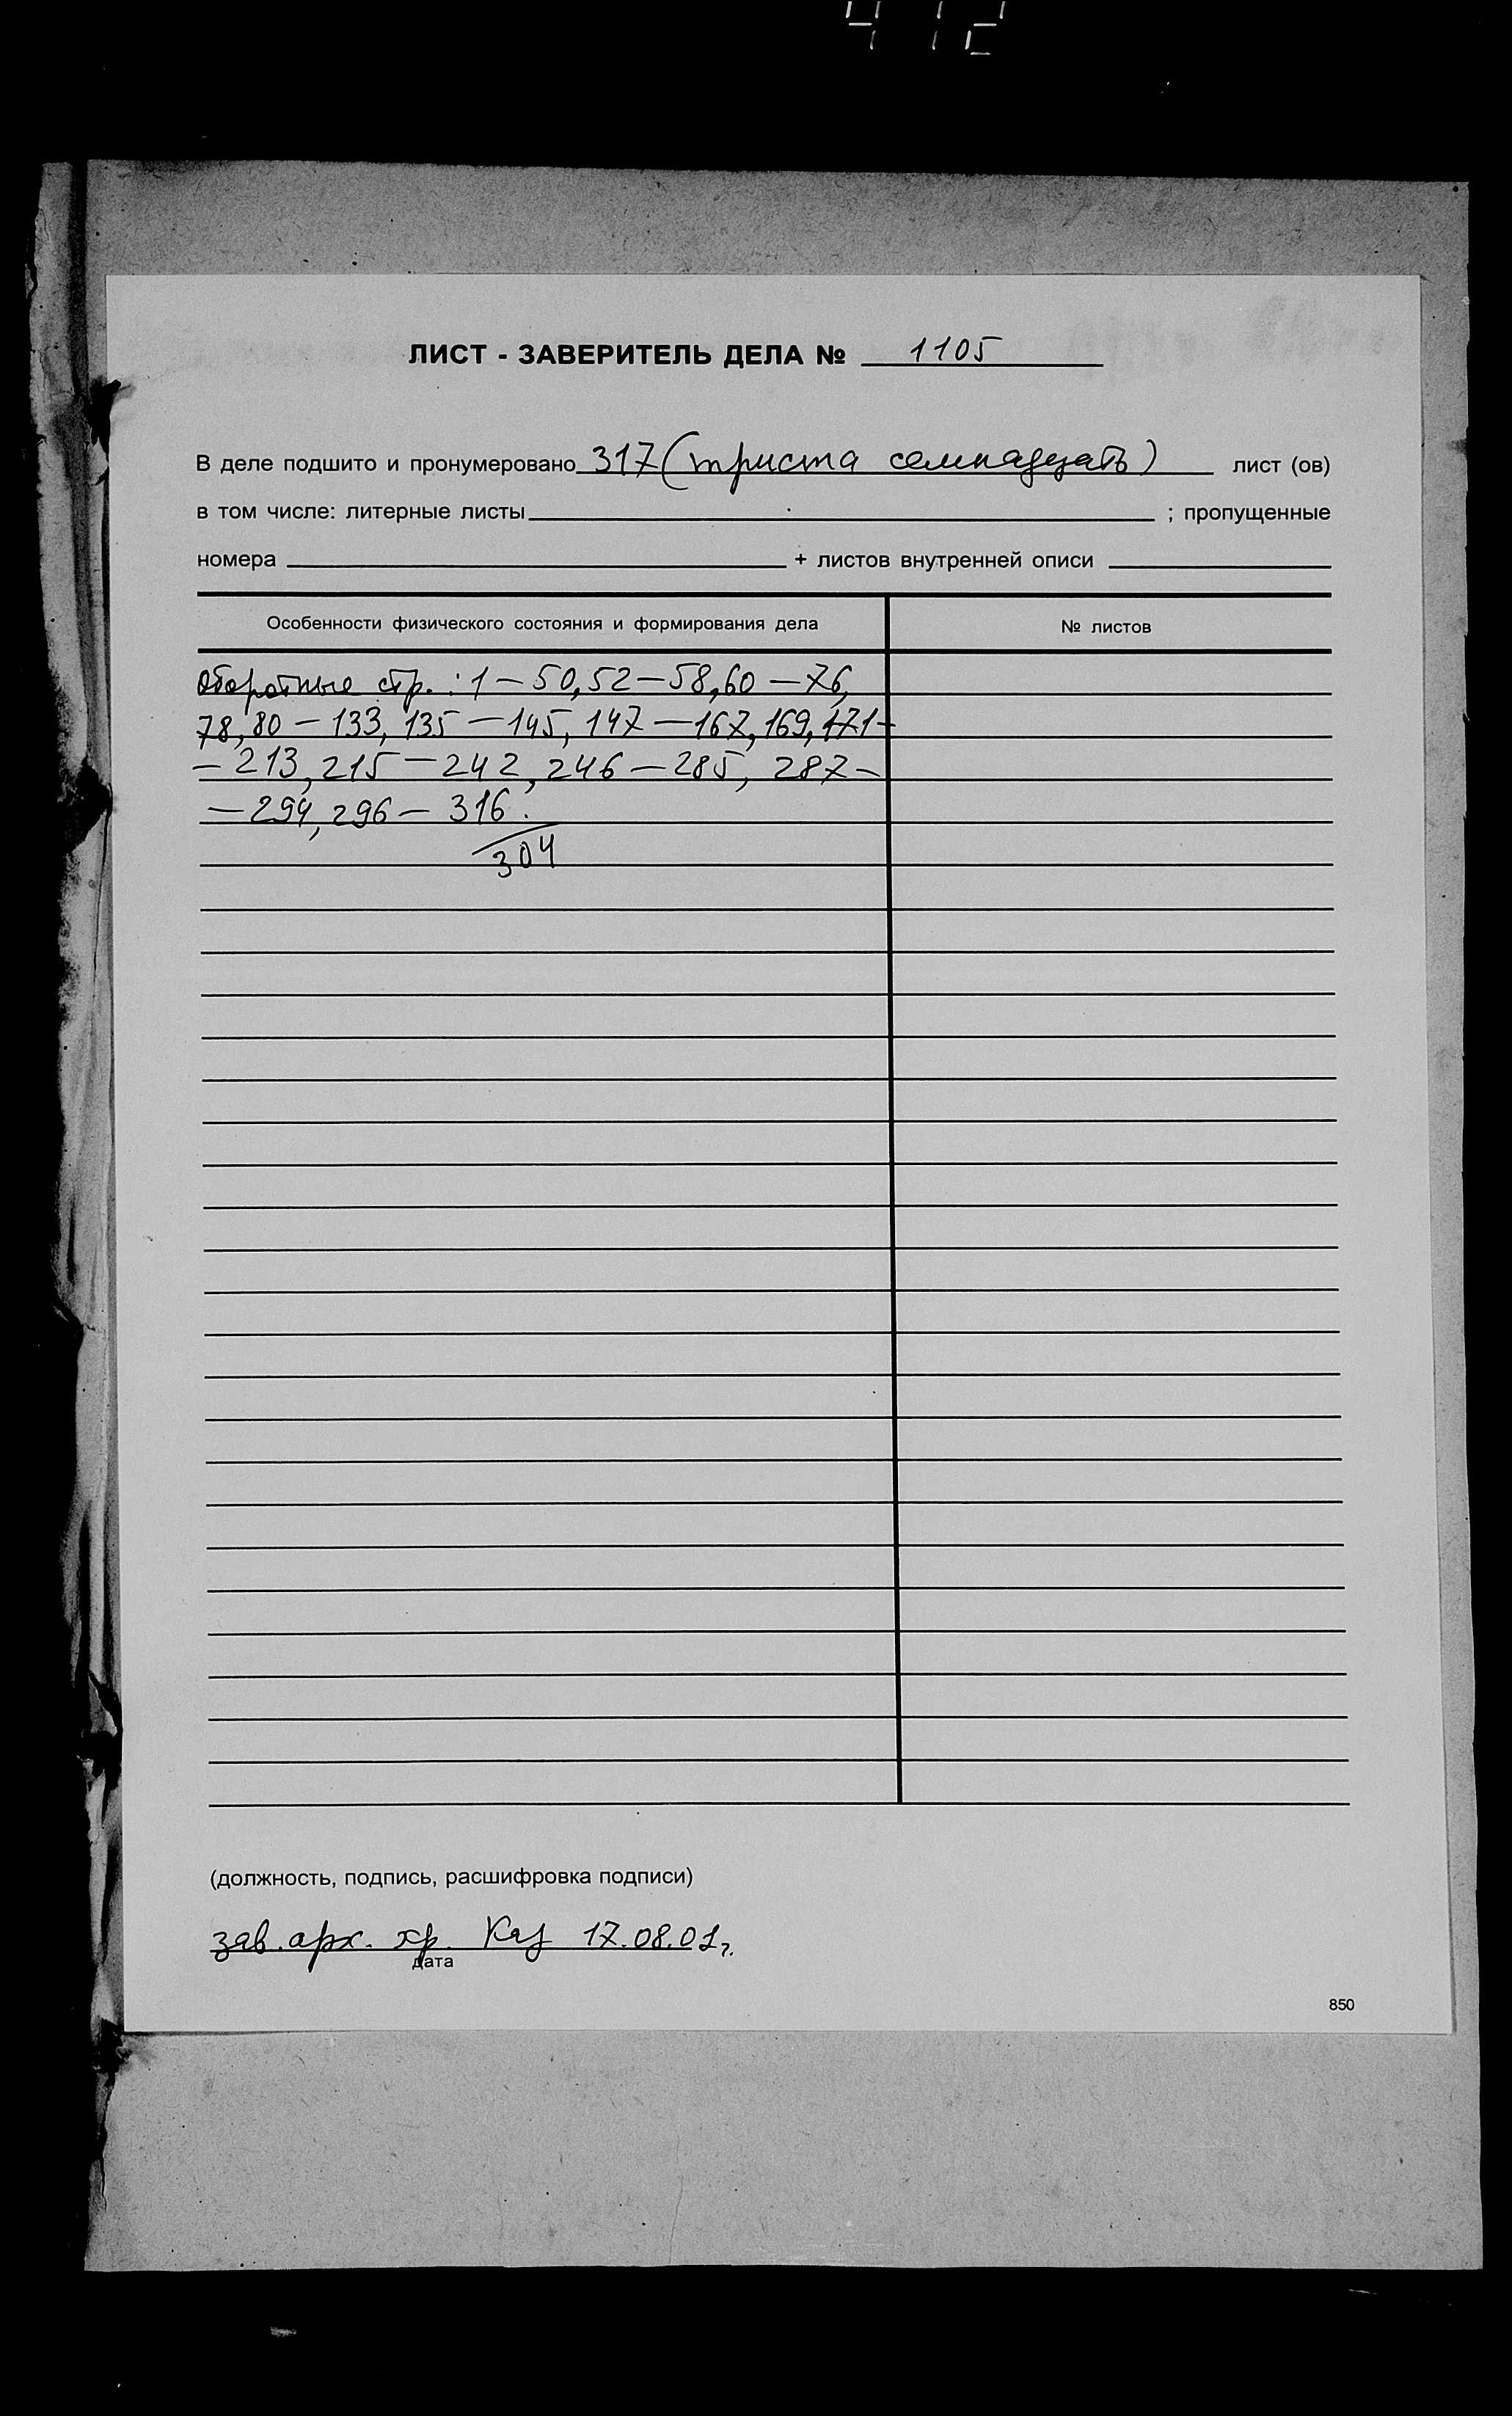 412
ЛИСТ - ЗАВЕРИТЕЛЬ ДЕЛА № 1105
В деле подшито и пронумеровано 317 (триста семнадцать) лист (ов)
в том числе: литерные листы ; пропущенные
номера + листов внутренней описи
Особенности физического состояния и формирования дела № листов
оборотные стр.: 1 – 50, 52 – 58, 60 – 76,
78, 80 – 133, 135 – 145, 147 – 167, 169, 171 –
– 213, 215 – 242, 246 – 285, 287 –
– 294, 296 – 316.
304
(должность, подпись, расшифровка подписи)
зав. арх. хр. 17.08.01г.
дата
850